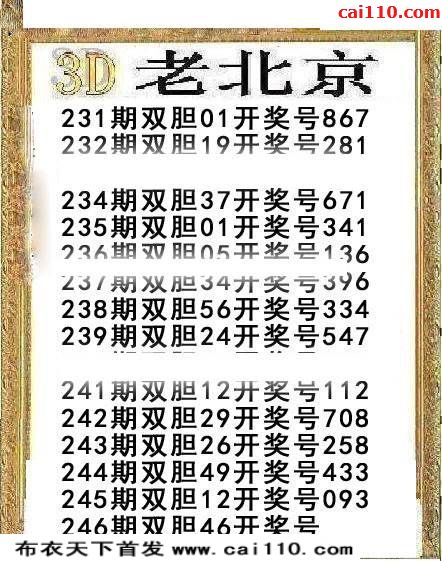 cai110.com
3D 老北京
231期双胆01开奖号867
232期双胆19开奖号281
234期双胆37开奖号671
235期双胆01开奖号341
236期双胆05开奖号136
237期双胆34开奖号396
238期双胆56开奖号334
239期双胆24开奖号547
241期双胆12开奖号112
242期双胆29开奖号708
243期双胆26开奖号258
244期双胆49开奖号433
245期双胆12开奖号093
246期双胆46开奖号
布衣天下首发 www.cai110.com